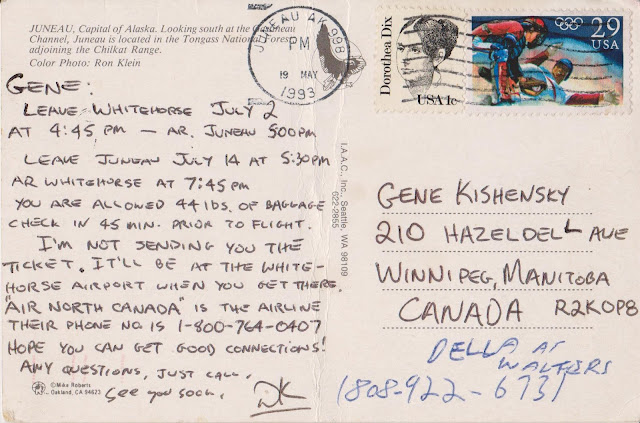 JUNEAU, Capital of Alaska. Looking south at the Gastineau
Channel, Juneau is located in the Tongass National Forest
adjoining the Chilkat Range.
Color Photo: Ron Klein
JUNEAU AK 998
PM
19 MAY
1993
Dorothea Dix
USA 1c
29
USA
GENE:
LEAVE WHITEHORSE JULY 2
AT 4:45 PM — AR. JUNEAU 500PM
LEAVE JUNEAU JULY 14 AT 5:30PM
AR WHITEHORSE AT 7:45PM
YOU ARE ALLOWED 44 LBS. OF BAGGAGE
CHECK IN 45 MIN. PRIOR TO FLIGHT.
I'M NOT SENDING YOU THE
TICKET. IT'LL BE AT THE WHITE-
HORSE AIRPORT WHEN YOU GET THERE.
"AIR NORTH CANADA" IS THE AIRLINE
THEIR PHONE NO. IS 1-800-764-0407
HOPE YOU CAN GET GOOD CONNECTIONS!
ANY QUESTIONS, JUST CALL.
SEE YOU SOON.
DK
©Mike Roberts
Oakland, CA 94623
I.A.A.C., Inc. Seattle, WA 98109
022-2805
GENE KISHENSKY
210 HAZELDELL AVE
WINNIPEG, MANITOBA
CANADA R2K0P8
DELLA AT
WALTERS
1808-922-6731